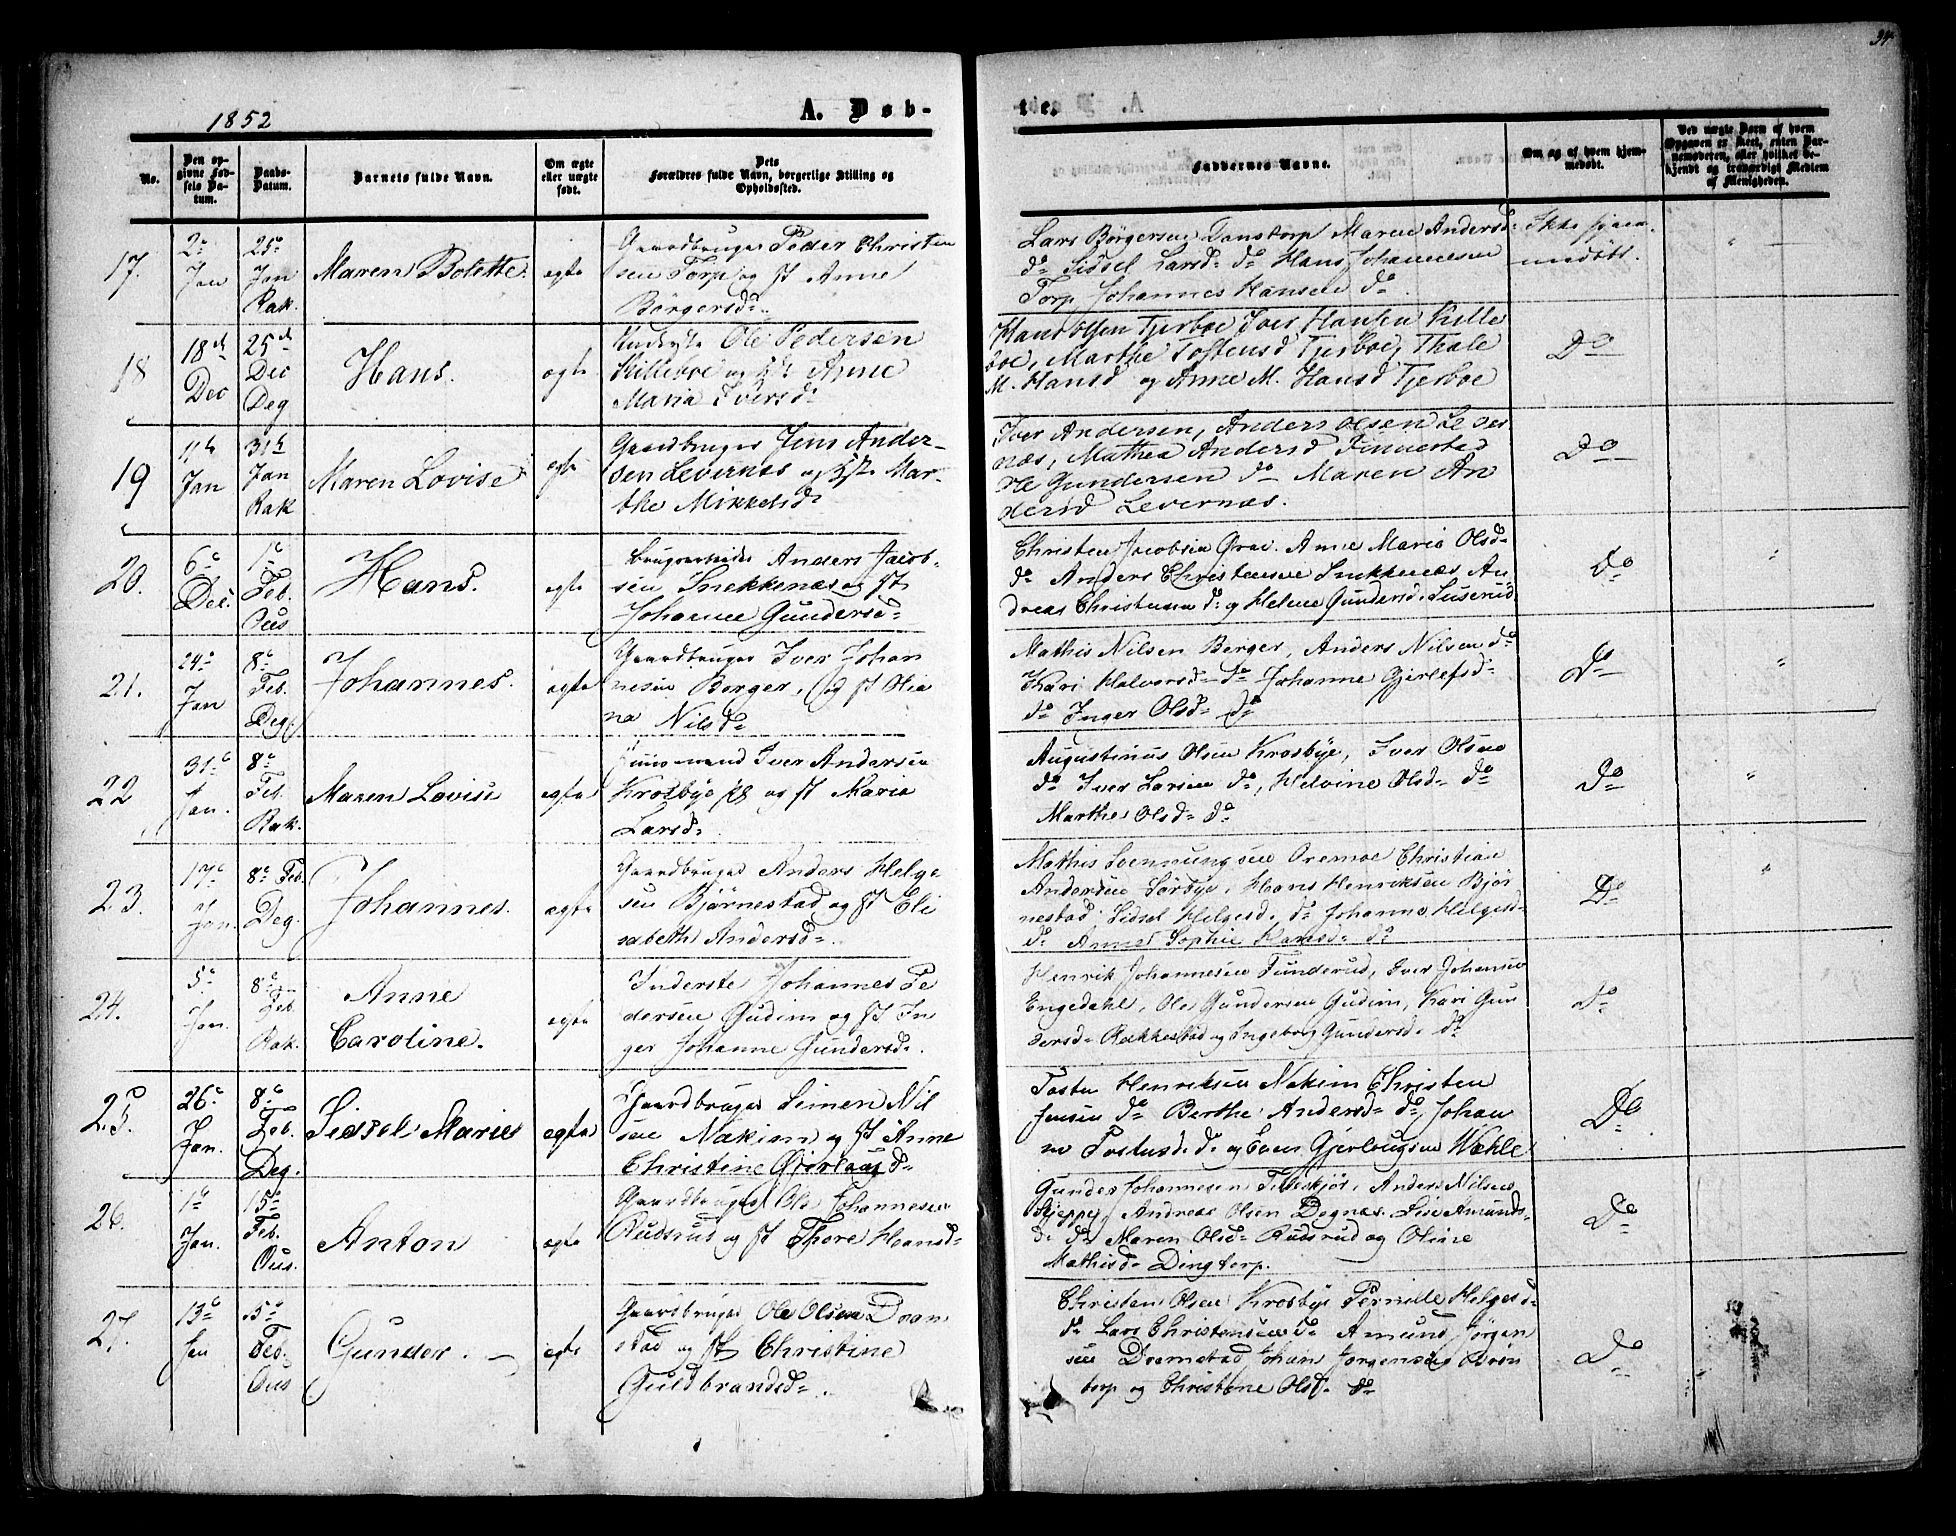 34
1852
A. Døb-
te.
No.
Den op-
givne Fød-
sels Da-
tum.
Daabs-
Datum.
Barnets fulde Navn.
Om ægte
eller uægte
født.
Dets
Forældres fulde Navn, borgerlige Stilling og
Opholdssted.
Faddernes Navne.
Om og af hvem hjem-
medøbt.
Ved uægte Børn af hvem
Opgaven er skeet, enten Bar-
nemoderen, eller hvilket be-
kjendt og troværdigt Medlem
af Menigheden.
17.
2
Jan
25
Jan
Rak.
Maren Bolette.
egte
Gaardbruger Peder Christen
sen Torp og
Anne
Börgersd.
Lars Börgersen Danstorp Maren Andersd.
do Sidsel Larsd. do Hans Johannesen
Torp Johannes Hansen do
Ikke hjem-
medöbt.
18
18d
Dec
25d
Dec
Deg
Hans.
egte
Ole Pedersen
Killeboe og
Anne
Maria Iversd
Hans Olsen Tjerboe Iver Hansen Kille
boe, Marthe Tostensd Tjerboe, Thale
M. Hansd og Anne M. Hansd Tjerboe
Do
19
11
Jan
31
Jan
Rak
Maren Lovise
egte
Gaardbruger Jens Ander-
sen Levernæs og
Mar-
the Mikkelsd
Iver Andersen, Anders Olsen Lever
næs, Mathea Andersd Finnestad
Ole Gundersen do Maren An
dersd Levernæs.
Do
20.
6
Dec.
1
Feb.
Ous
Hans.
egte
Anders Jacob-
sen Snekkenæs og
Johanne Gundersd
Christen Jacobsen Grav. Anne Maria Olsd
do Anders Christensen Snekkenæs An
dreas Christensen do og Helene Gundersd. Suserud
Do
21.
24
Jan
8
Feb.
Deg.
Johannes.
egte
Gaardbruger Iver Johan
nesen Berger, og
Olia
na Nilsd
Mathis Nilsen Berger, Anders Nilsen do
Kari Halvorsd do Johanne Gjerlefsd
do Inger Olsd do
Do
22
31
Jan.
8
Feb.
Rak.
Maren Lovise
egte
Iver Andersen
Krosbye
og
Maria
Larsd
Augustinus Olsen Krosbye, Iver Olsen
do Iver Larsen do, Helvine Olsd do
Marthe Olsd do
Do
23.
17
Jan.
8 Feb.
Deg.
Johannes.
egte
Gaardbruger Anders Helge
sen Bjørnestad og
Eli
sabeth Andersd
Mathis
Oremoe Christian
Andersen Sörbye, Hans Henriksen Björ
nestad Sidsel Helgesd. do Johanne Helgesd
do Anne Sophie Hansd. do
Do
24.
5
Jan.
8
Feb.
Rak.
Anne
Caroline.
egte
Inderste Johannes Pe
dersen Gudim og
In
ger Johanne Gundersd.
Henrik Johannesen Funderud, Iver Johansen
Engedahl, Ole Gundersen Gudim, Kari Gun
dersd Rakkestad og Ingeborg Gundersd. do
Do
25.
26
Jan.
8
Feb.
Deg.
Sidsel Marie
egte
Gaardbruger Simen Nil
sen Nakim og
Anne
Christine
Tosten Henriksen Nakim Christen
Jensen do Berthe Andersd do, Johan
ne Tostensd. do og Even Gjerlougsen Wæhle
Do
26.
1
Jan.
15
Feb.
Ous.
Anton
egte
Gaardbruger Ole Johannesen
Rudsrud og
Thore Hansd
Gunder Johannesen
Anders Nilsen
Andreas Olsen Degnæs. Lise Amunds-
d. do Maren Olsd Rudsrud og Oline
Mathisd Dingtorp.
Do
27.
13
Jan
15
Feb.
Ous
Gunder.
egte
Gaardbruger Ole Olsen Dram
stad og
Christine
Guldbrandsd
Christen Olsen Krosbye Pernille Helgesd
do Lars Christensen do Amund Jörgen
sen Dramstad, Johan Jørgensen Brön
torp og Christine Olsd. do
Do